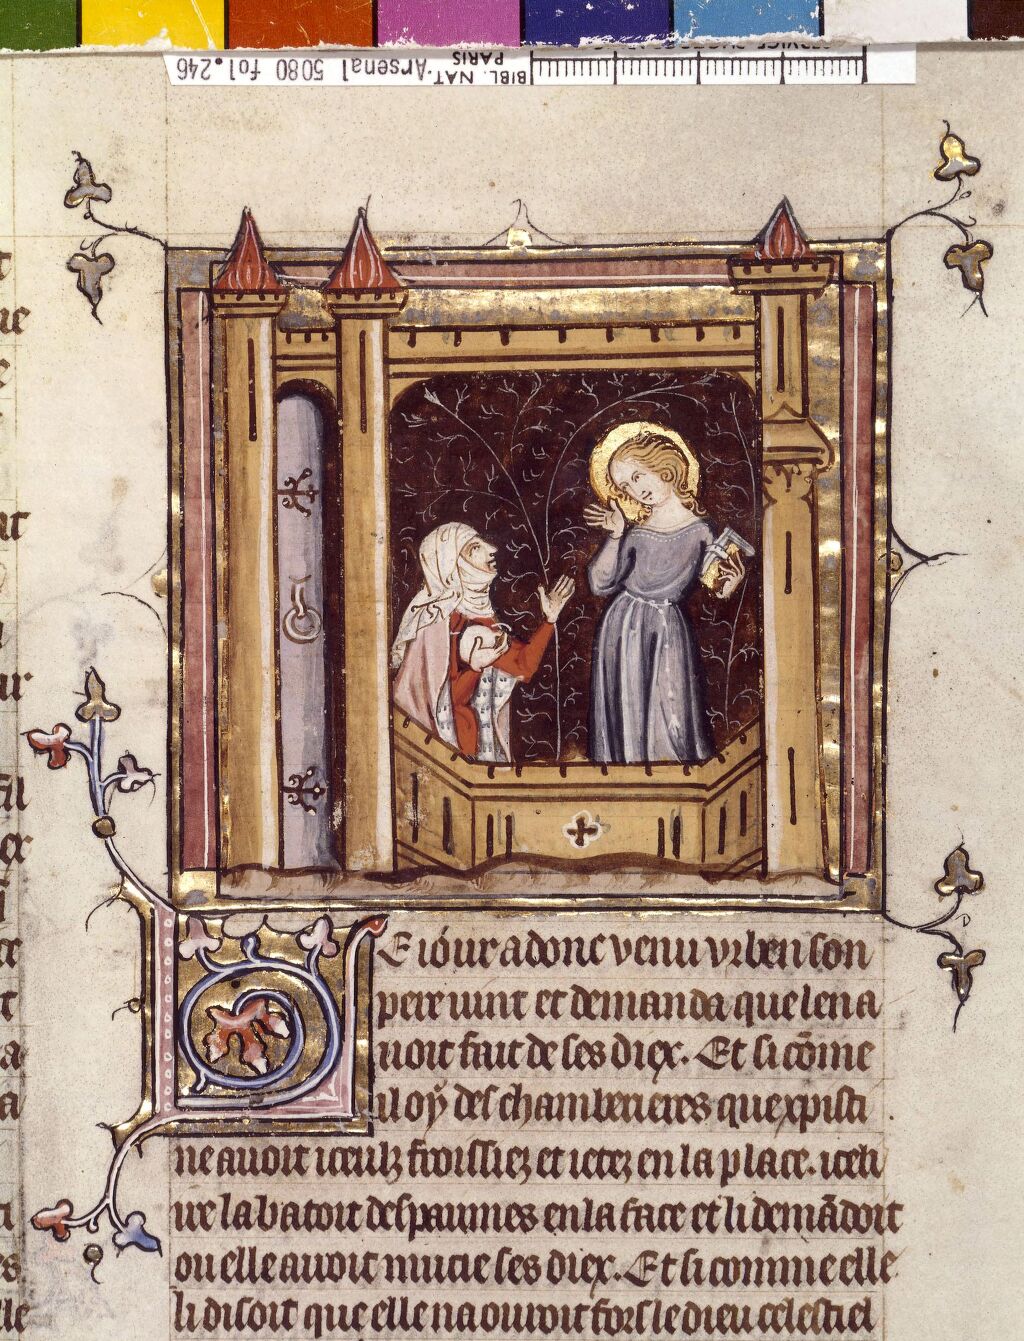 BIBL. NAT. Arsenal 5080 fol.246
PARIS
E iour adonc venu vrben son
pere vint et demanda que lena
uoit fait de ses diex. Et si cōme
il oÿ des chamberieres que xpisti
ne auoit iceulz froissiez et ietez en la place. iceli
ure la batoit des paumes en la face et li demādoit
ou elle auoit mucie ses diex. Et si comme elle
li disoit que elle naouroit fors le dieu celestiel